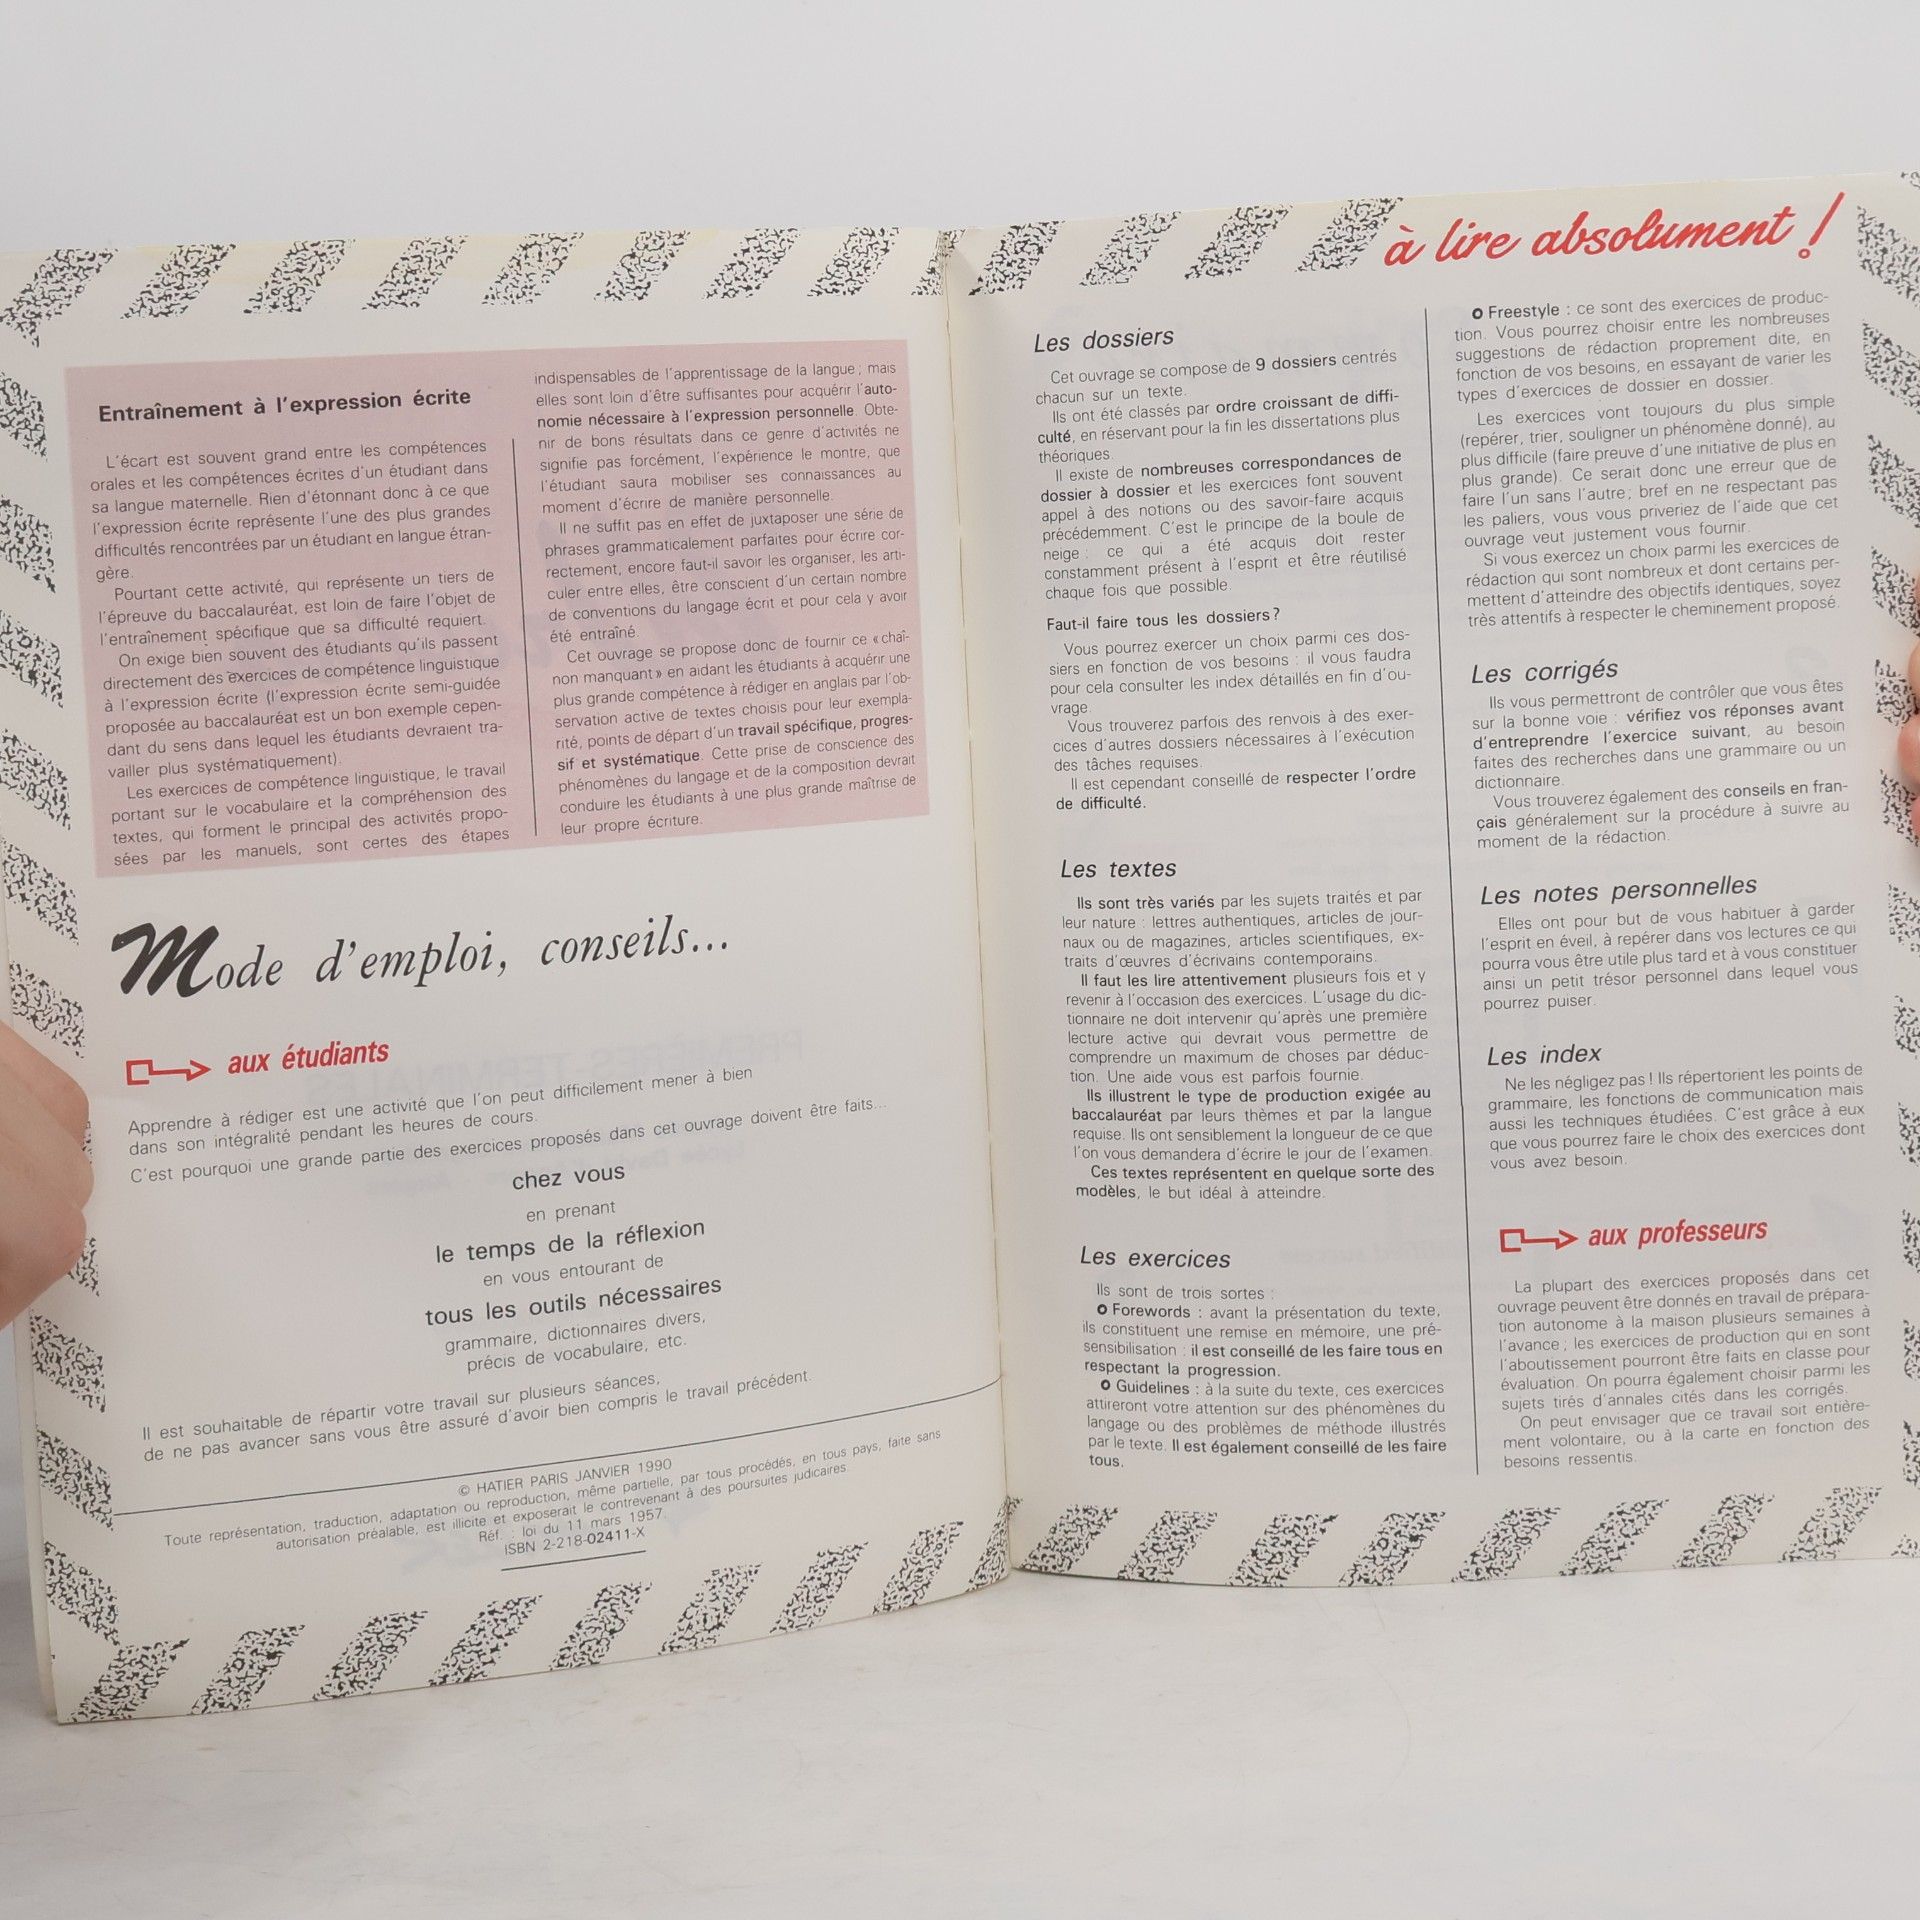 Entraînement à l'expression écrite
L'écart est souvent grand entre les compétences
orales et les compétences écrites d'un étudiant dans
sa langue maternelle. Rien d'étonnant donc à ce que
l'expression écrite représente l'une des plus grandes
difficultés rencontrées par un étudiant en langue étran-
gère.
Pourtant cette activité, qui représente un tiers de
l'épreuve du baccalauréat, est loin de faire l'objet de
l'entraînement spécifique que sa difficulté requiert.
On exige bien souvent des étudiants qu'ils passent
directement des exercices de compétence linguistique
à l'expression écrite (l'expression écrite semi-guidée
proposée au baccalauréat est un bon exemple cepen-
dant du sens dans lequel les étudiants devraient tra-
vailler plus systématiquement).
Les exercices de compétence linguistique, le travail
portant sur le vocabulaire et la compréhension des
textes, qui forment le principal des activités propo-
sées par les manuels, sont certes des étapes
indispensables de l'apprentissage de la langue ; mais
elles sont loin d'être suffisantes pour acquérir l'auto-
nomie nécessaire à l'expression personnelle. Obte-
nir de bons résultats dans ce genre d'activités ne
signifie pas forcément, l'expérience le montre, que
l'étudiant saura mobiliser ses connaissances au
moment d'écrire de manière personnelle.
Il ne suffit pas en effet de juxtaposer une série de
phrases grammaticalement parfaites pour écrire cor-
rectement, encore faut-il savoir les organiser, les arti-
culer entre elles, être conscient d'un certain nombre
de conventions du langage écrit et pour cela y avoir
été entraîné.
Cet ouvrage se propose donc de fournir ce « chaî-
non manquant » en aidant les étudiants à acquérir une
plus grande compétence à rédiger en anglais par l'ob-
servation active de textes choisis pour leur exempla-
rité, points de départ d'un travail spécifique, progres-
sif et systématique. Cette prise de conscience des
phénomènes du langage et de la composition devrait
conduire les étudiants à une plus grande maîtrise de
leur propre écriture.
Mode d'emploi, conseils...
aux étudiants
Apprendre à rédiger est une activité que l'on peut difficilement mener à bien
dans son intégralité pendant les heures de cours.
C'est pourquoi une grande partie des exercices proposés dans cet ouvrage doivent être faits...
chez vous
en prenant
le temps de la réflexion
en vous entourant de
tous les outils nécessaires
grammaire, dictionnaires divers,
précis de vocabulaire, etc.
Il est souhaitable de répartir votre travail sur plusieurs séances,
de ne pas avancer sans vous être assuré d'avoir bien compris le travail précédent.
© HATIER PARIS JANVIER 1990
Toute représentation, traduction, adaptation ou reproduction, même partielle, par tous procédés, en tous pays, faite sans
autorisation préalable, est illicite et exposerait le contrevenant à des poursuites judicaires.
Réf. : loi du 11 mars 1957.
ISBN 2-218-02411-X
à lire absolument !
Les dossiers
Cet ouvrage se compose de 9 dossiers centrés
chacun sur un texte.
Ils ont été classés par ordre croissant de diffi-
culté, en réservant pour la fin les dissertations plus
théoriques.
Il existe de nombreuses correspondances de
dossier à dossier et les exercices font souvent
appel à des notions ou des savoir-faire acquis
précédemment. C'est le principe de la boule de
neige : ce qui a été acquis doit rester
constamment présent à l'esprit et être réutilisé
chaque fois que possible.
Faut-il faire tous les dossiers ?
Vous pourrez exercer un choix parmi ces dos-
siers en fonction de vos besoins : il vous faudra
pour cela consulter les index détaillés en fin d'ou-
vrage.
Vous trouverez parfois des renvois à des exer-
cices d'autres dossiers nécessaires à l'exécution
des tâches requises.
Il est cependant conseillé de respecter l'ordre
de difficulté.
Les textes
Ils sont très variés par les sujets traités et par
leur nature : lettres authentiques, articles de jour-
naux ou de magazines, articles scientifiques, ex-
traits d'œuvres d'écrivains contemporains.
Il faut les lire attentivement plusieurs fois et y
revenir à l'occasion des exercices. L'usage du dic-
tionnaire ne doit intervenir qu'après une première
lecture active qui devrait vous permettre de
comprendre un maximum de choses par déduc-
tion. Une aide vous est parfois fournie.
Ils illustrent le type de production exigée au
baccalauréat par leurs thèmes et par la langue
requise. Ils ont sensiblement la longueur de ce que
l'on vous demandera d'écrire le jour de l'examen.
Ces textes représentent en quelque sorte des
modèles, le but idéal à atteindre.
Les exercices
Ils sont de trois sortes :
Forewords : avant la présentation du texte,
ils constituent une remise en mémoire, une pré-
sensibilisation : il est conseillé de les faire tous en
respectant la progression.
Guidelines : à la suite du texte, ces exercices
attireront votre attention sur des phénomènes du
langage ou des problèmes de méthode illustrés
par le texte. Il est également conseillé de les faire
tous.
Freestyle : ce sont des exercices de produc-
tion. Vous pourrez choisir entre les nombreuses
suggestions de rédaction proprement dite, en
fonction de vos besoins, en essayant de varier les
types d'exercices de dossier en dossier.
Les exercices vont toujours du plus simple
(repérer, trier, souligner un phénomène donné), au
plus difficile (faire preuve d'une initiative de plus en
plus grande). Ce serait donc une erreur que de
faire l'un sans l'autre ; bref en ne respectant pas
les paliers, vous vous priveriez de l'aide que cet
ouvrage veut justement vous fournir.
Si vous exercez un choix parmi les exercices de
rédaction qui sont nombreux et dont certains per-
mettent d'atteindre des objectifs identiques, soyez
très attentifs à respecter le cheminement proposé.
Les corrigés
Ils vous permettront de contrôler que vous êtes
sur la bonne voie : vérifiez vos réponses avant
d'entreprendre l'exercice suivant, au besoin
faites des recherches dans une grammaire ou un
dictionnaire.
Vous trouverez également des conseils en fran-
çais généralement sur la procédure à suivre au
moment de la rédaction.
Les notes personnelles
Elles ont pour but de vous habituer à garder
l'esprit en éveil, à repérer dans vos lectures ce qui
pourra vous être utile plus tard et à vous constituer
ainsi un petit trésor personnel dans lequel vous
pourrez puiser.
Les index
Ne les négligez pas ! Ils répertorient les points de
grammaire, les fonctions de communication mais
aussi les techniques étudiées. C'est grâce à eux
que vous pourrez faire le choix des exercices dont
vous avez besoin.
aux professeurs
La plupart des exercices proposés dans cet
ouvrage peuvent être donnés en travail de prépara-
tion autonome à la maison plusieurs semaines à
l'avance ; les exercices de production qui en sont
l'aboutissement pourront être faits en classe pour
évaluation. On pourra également choisir parmi les
sujets tirés d'annales cités dans les corrigés.
On peut envisager que ce travail soit entière-
ment volontaire, ou à la carte en fonction des
besoins ressentis.